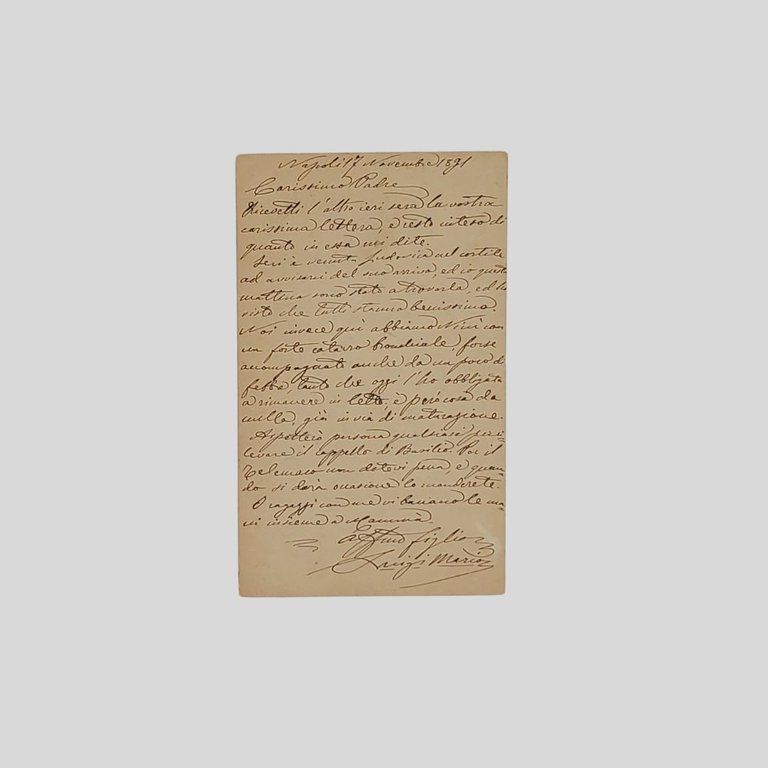 Napoli 17 Novembre 1891
Carissimo Padre
Ricevetti l'altro ieri sera la vostra
carissima lettera, e resto inteso di
quanto in essa mi dite.
Ieri è venuta Ludovica nel cortile
ad avvisarci del suo arrivo, ed io questa
mattina sono stato a trovarla, ed ho
visto che tutti stanno benissimo.
Noi invece quì abbiamo Ninì con
un forte catarro bronchiale, forse
accompagnato anche da un poco di
febbre, tanto che oggi l'ho obbligata
a rimanere in letto, è però cosa da
nulla, già in via di maturazione.
Aspetterò persona qualsiasi per ri
levare il cappello di Basilio. Per il
Telemaco non datevi pena, e quan
do si darà occasione lo manderete.
I ragazzi con me vi baciano le ma
ni insieme a Mammà.
Aff.mo figlio
Luigi Mario